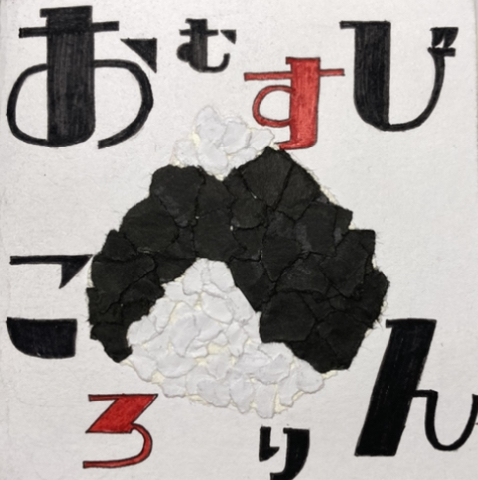 おむすび
ころりん